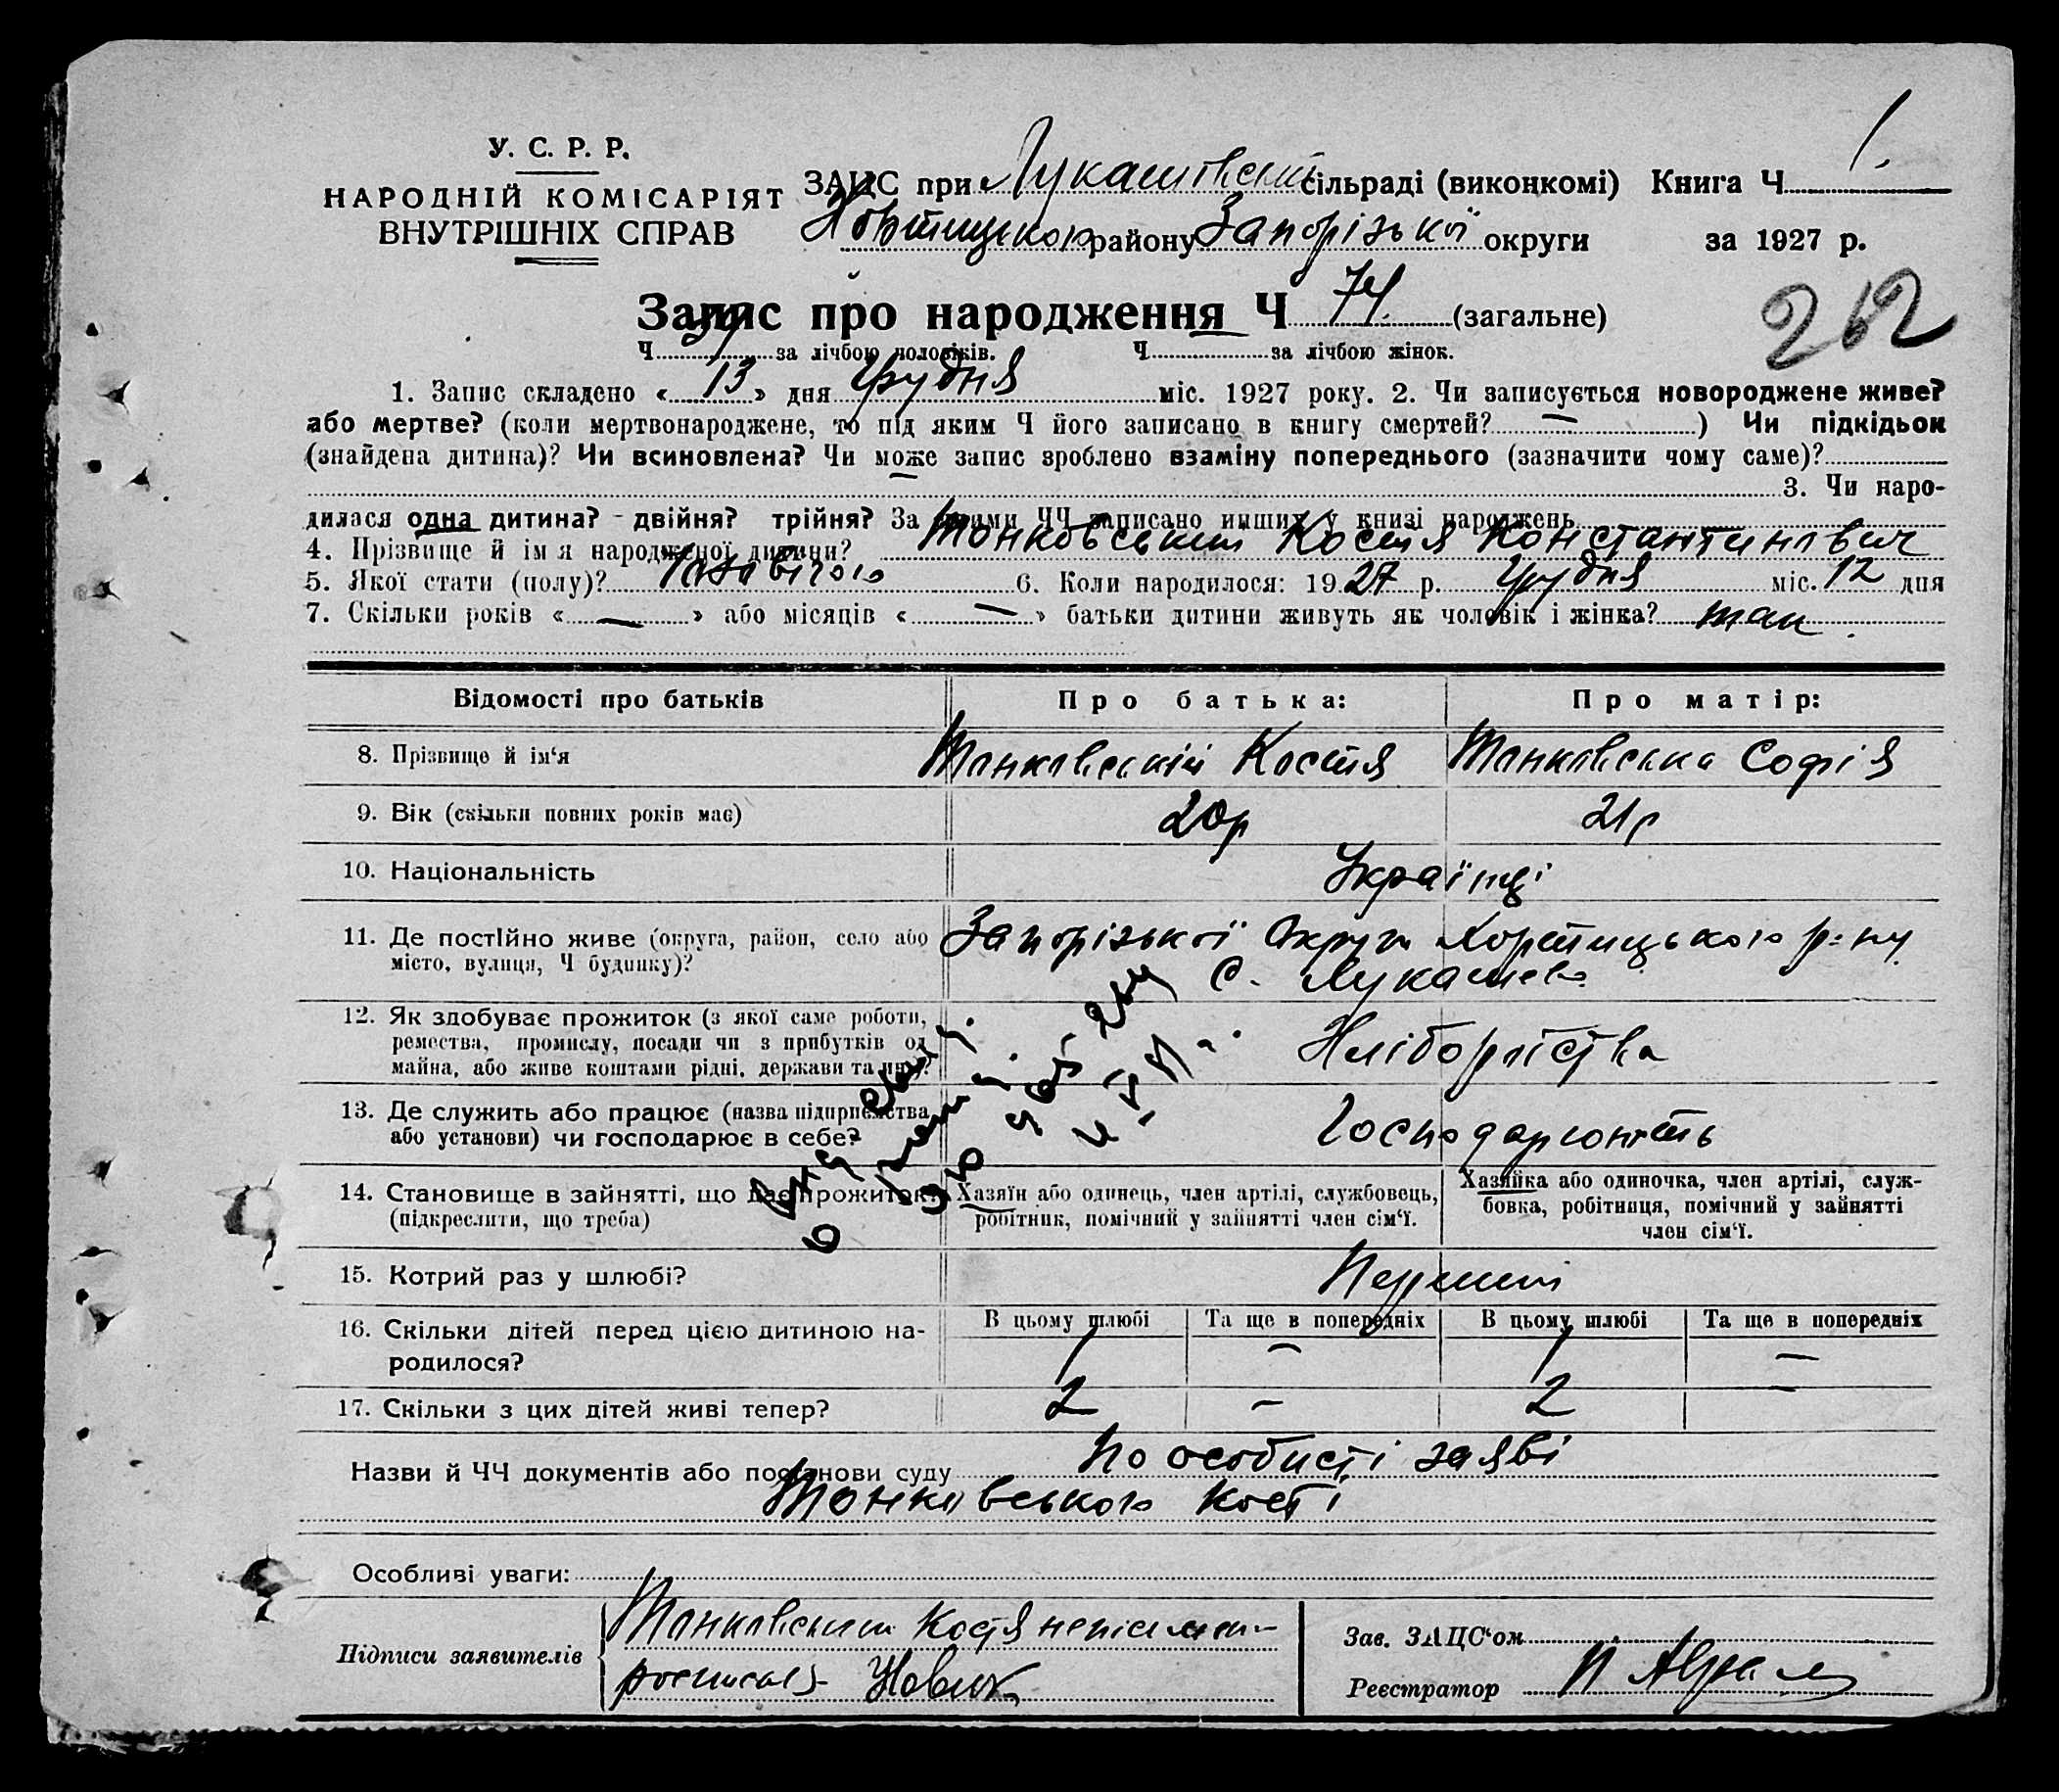 У. С. Р. Р.
НАРОДНІЙ КОМІСАРІЯТ
ВНУТРІШНІХ СПРАВ
ЗАЦС при Лукашівській сільраді (виконкомі) Книга Ч 1.
Хортицького району Запорізької округи за 1927 р.
262
Запис про народження Ч 74. (загальне)
Ч 39 за лічбою чоловіків. Ч за лічбою жінок.
1. Запис складено « 13 » дня Грудня міс. 1927 року. 2. Чи записується новороджене живе?
або мертве? (коли мертвонароджене, то під яким Ч його записано в книгу смертей? — ) Чи підкідьок
(знайдена дитина)? Чи всиновлена? Чи може запис зроблено взаміну попереднього (зазначити чому саме)?
3. Чи наро-
дилася одна дитина? - двійня? трійня? За якими ЧЧ записано инших у книзі народжень
4. Прізвище й ім'я народженої дитини? Тонковський Костя Константинович
5. Якої стати (полу)? 6. Коли народилося: 19 27 р. Грудня міс. 12 дня
7. Скільки років « — » або місяців « — » батьки дитини живуть як чоловік і жінка? так.
Відомості про батьків
Про батька:
Про матір:
8. Прізвище й ім'я
Тонковській Костя
Тонковська Софія
9. Вік (скільки повних років має)
20р
21р
10. Національність
Українці
11. Де постійно живе (округа, район, село або
місто, вулиця, Ч будинку)?
Запорізької Округи Хортицького р-ну
С. Лукашево
12. Як здобуває прожиток (з якої саме роботи,
ремества, промислу, посади чи з прибутків од
майна, або живе коштами рідні, держави та инш?
Хліборобства
13. Де служить або працює (назва підприємства
або установи) чи господарює в себе?
Господарюють
14. Становище в зайнятті, що дає прожиток
(підкреслити, що треба)
Хазяїн або одинець, член артілі, службовець,
робітник, помічний у зайнятті член сім'ї.
Хазяйка або одиночка, член артілі, служ-
бовка, робітниця, помічний у зайнятті
член сім'ї.
15. Котрий раз у шлюбі?
16. Скільки дітей перед цією дитиною на-
родилося?
В цьому шлюбі
Та ще в попередніх
В цьому шлюбі
Та ще в попередніх
1 — 1 —
17. Скільки з цих дітей живі тепер?
2 – 2 —
Назви й ЧЧ документів або постанови суду По особисті заяві
Тонковського Кості
Особливі уваги:
Підписи заявителів
Тонковський Костя
Новик
Зав. ЗАЦС'ом
Реєстратор